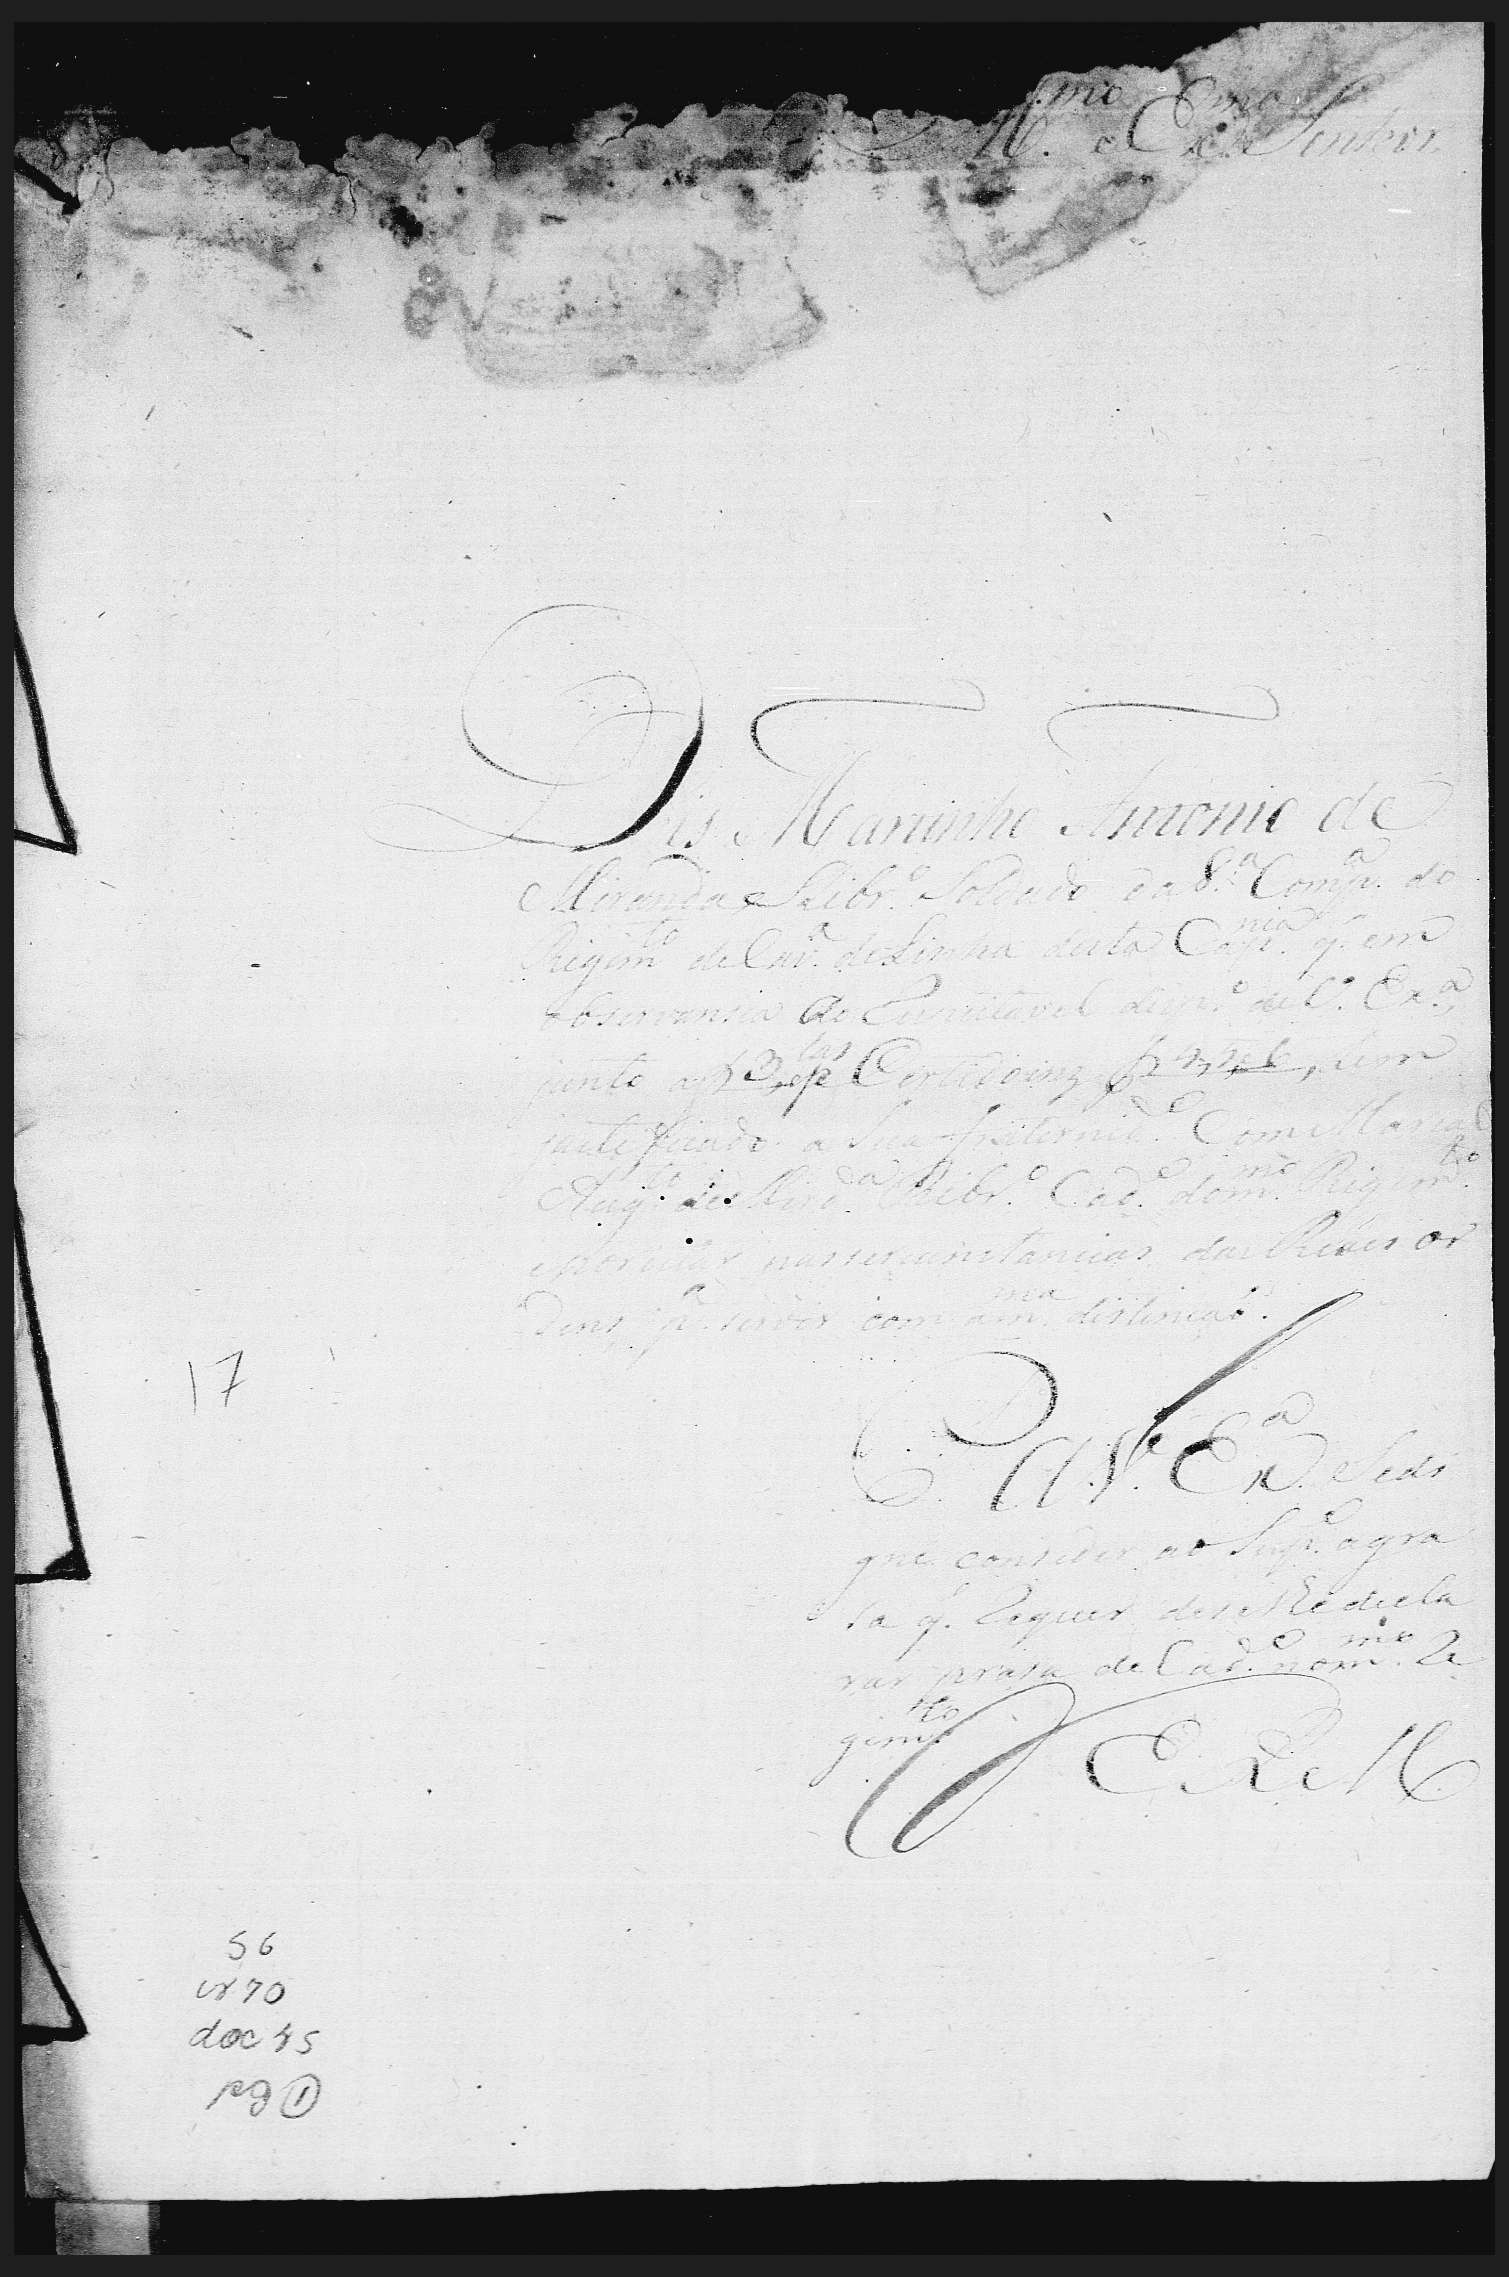 Ill.mo e Ex.mo Senhor
Dis Martinho Antonio de
Miranda e Ribr.o Soldado da 8.a Comp.a do
Regim.to de Cav.a de Linha desta Cap.nia q. em
observansia do Respeitavel desp.o de V. Ex.a
junto as 3 Certidoins tem
justeficado a sua fraternid.e Com Marcal
Aug.to de Mir.da Ribr.o Cad.e do m.mo Regim.to
nas sircunstancias das Reais or
dens p.a servir com a m.ma distinçaõ.
P. A V. Ex.a Sedi
gne conseder ao Sup.e a gra
sa q. Requer de se lhe decla
rar prasa de Cad.e no m.mo Re
gim.to
E R M
17
56
cx 70
doc 45
pg 1